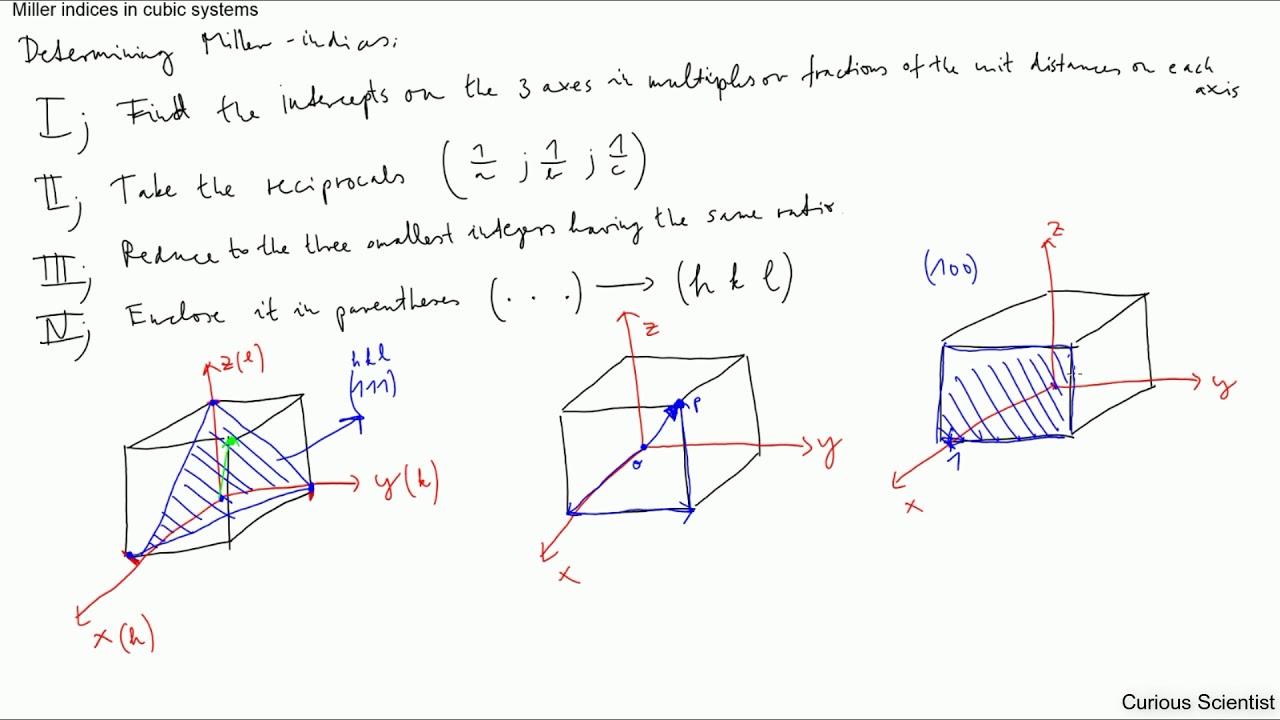 Miller indices in cubic systems
Determining Miller-indices:
I; Find the intercepts on the 3 axes in multiples or fractions of the unit distances on each
axis
II; Take the reciprocals (1/a ; 1/b ; 1/c)
III; Reduce to the three smallest integers having the same ratio.
IV; Enclose it in parentheses (. . .) → (h k l)
z(l)
hkl
(111)
y(k)
x(h)
z
P
o
y
x
(100)
z
y
1
x
Curious Scientist